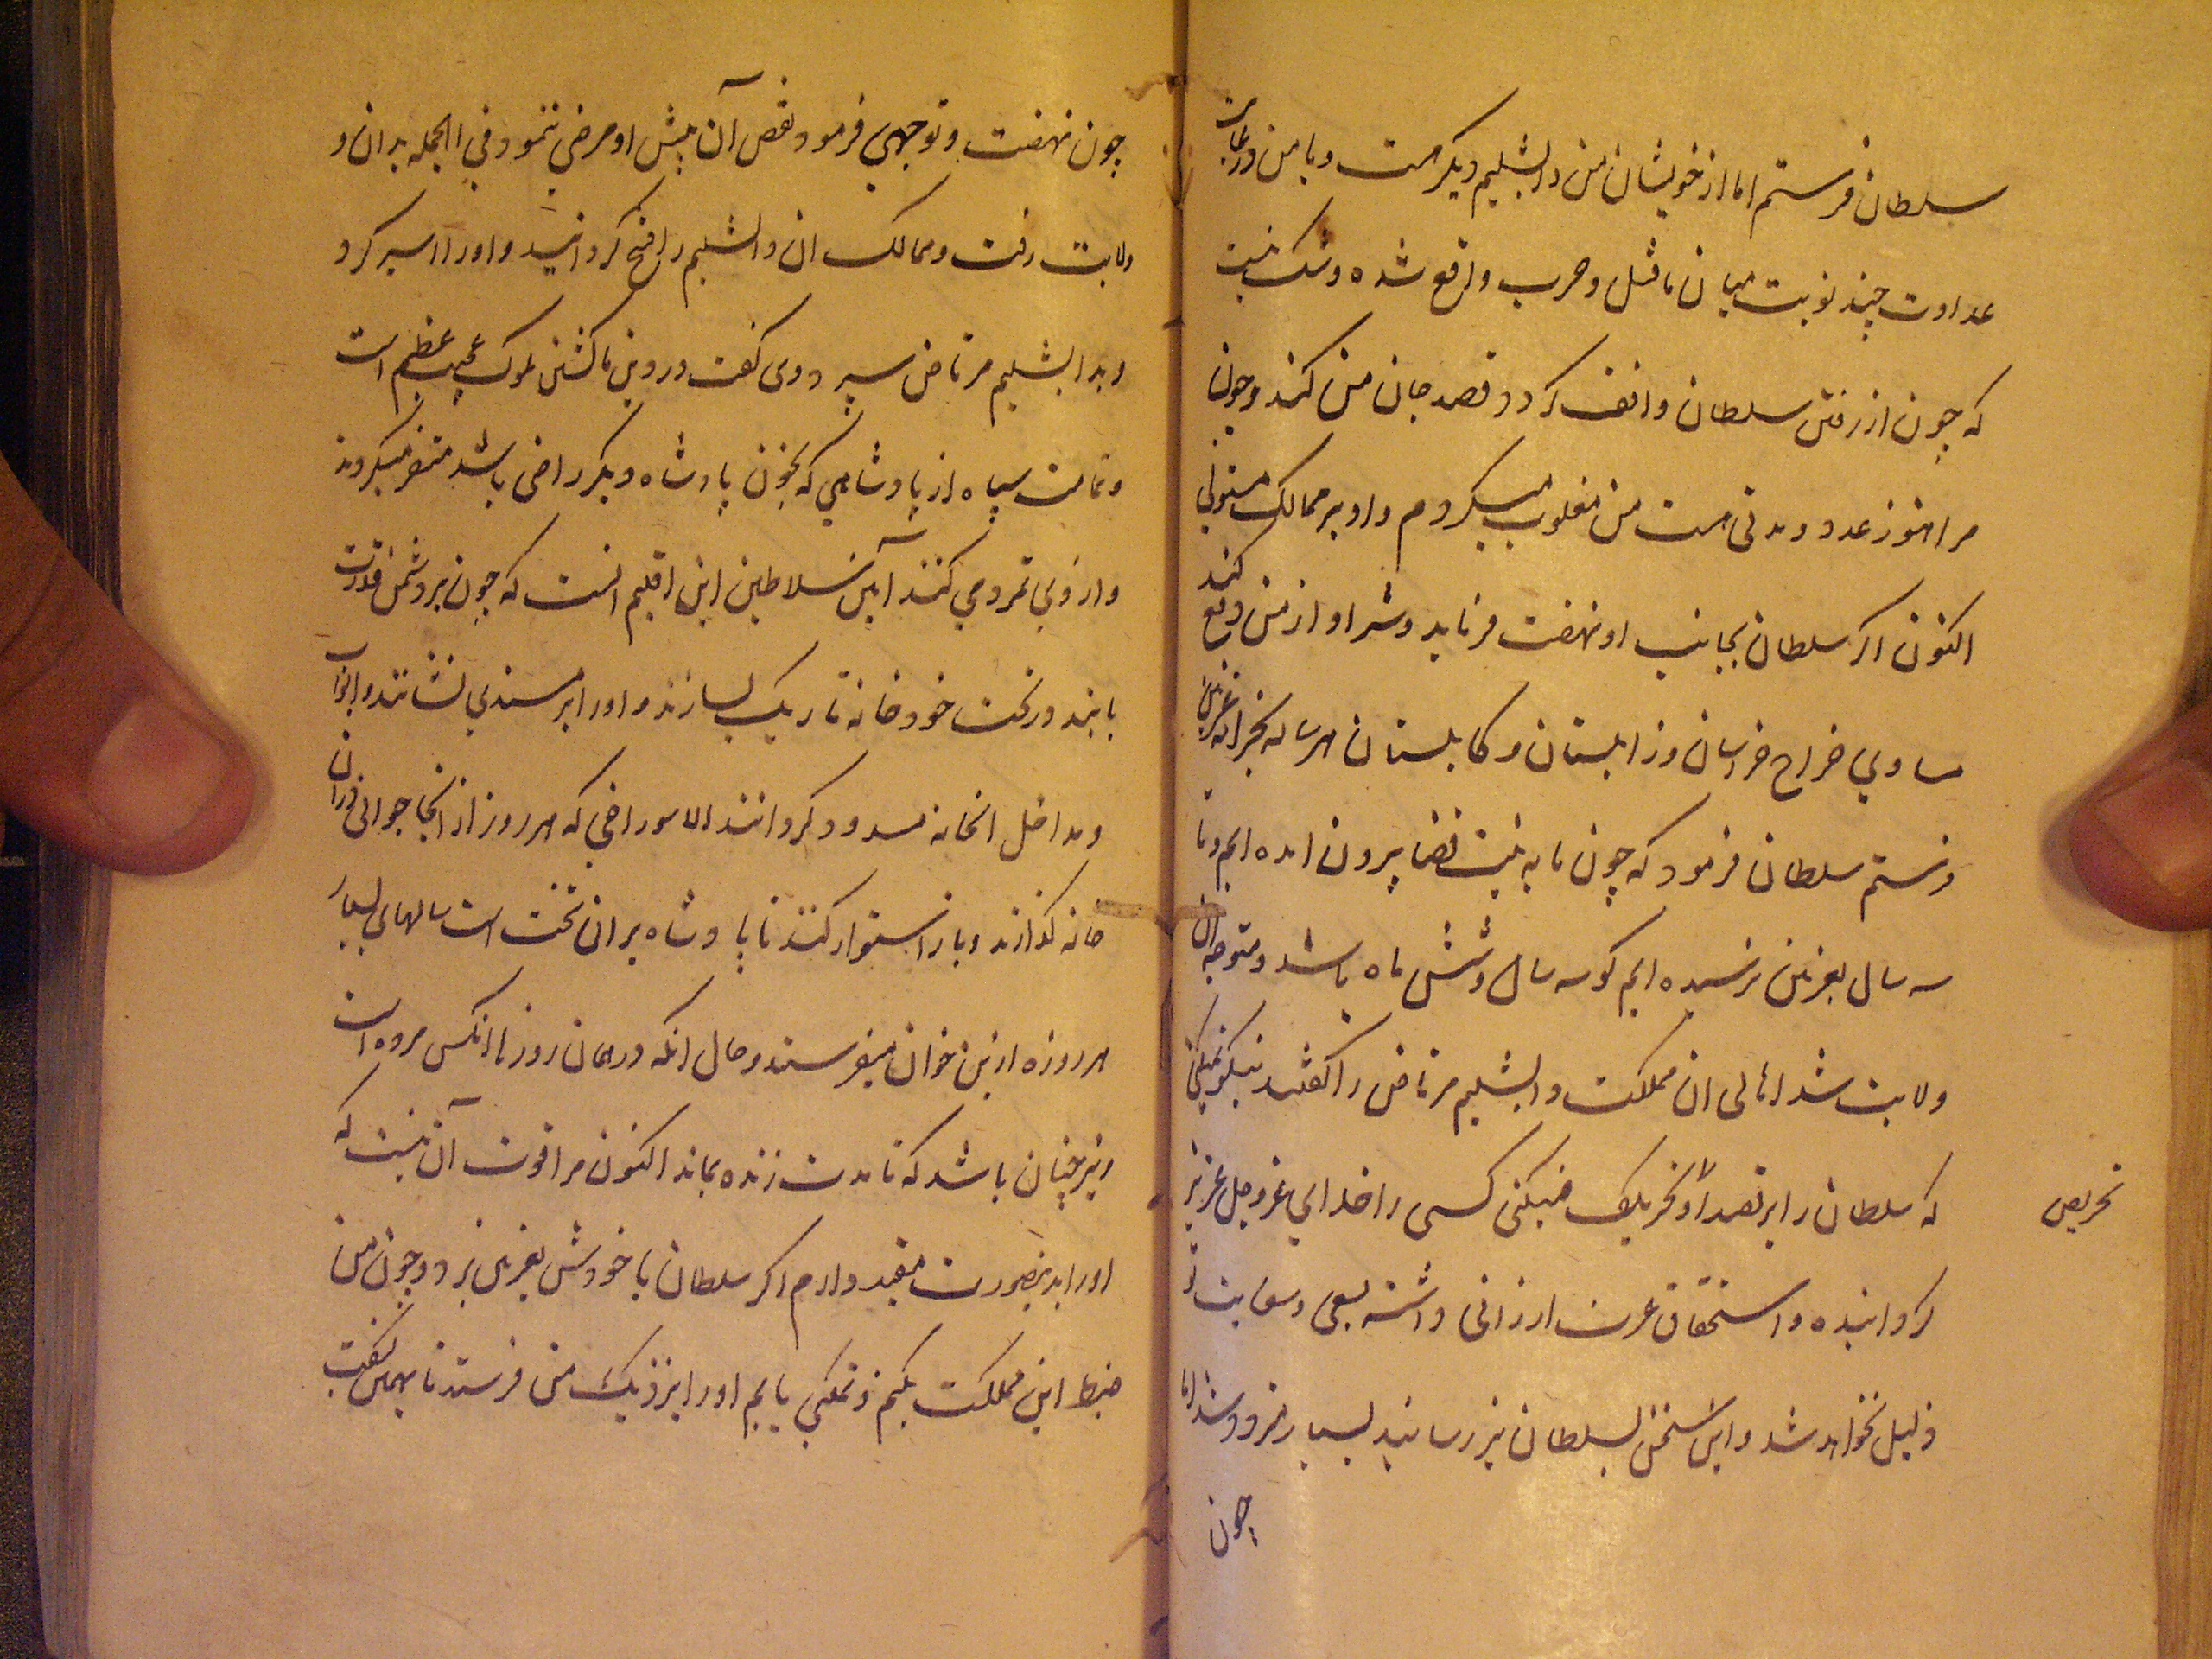 سلطان فرستم اما از خویشان من دابشلیم دیکر هست و با من در غایت
عداوت چند نوبت میان ما قتل و حرب واقع شده و شک نیست
که چون از رفتن سلطان واقف کردد قصد جان من کند و چون
مرا هنوز عدد و مدتی هست من مغلوب میکردم و او بر ممالک مستولی
اکنون اکر سلطان بجانب او نهضت فرماید و شر او از من دفع کند
مساوی خراج خراسان و زابلستان و کابلستان هر ساله بخزانه غزنین
فرستم سلطان فرمود که چون ما به نیت غزا بیرون امده ایم و تا
سه سال بغزنین نرسیده ایم کو سه سال و شش ماه باشد و متوجه ان
ولایت شد اهالی ان مملکت دابشلیم مرتاض را کفتند نیکو نمیکنی
که سلطان را بر قصد او تحریک میکنی کسی را خدای عز و جل عزیز
تحریص
کردانیده و استحقاق عزت ارزانی داشته بسعی و سعایت تو
ذلیل نخواهد شد و این سخن بسلطان نیز رسانید بسیار متردد شد اما
چون
چون نهضت و توجهی فرمود نقص آن پیش او مرضی ننمود فی الجمله بدان و
ولایت رفت و ممالک ان دابشلیم را فتح کردانید و اورا اسیر کرد
و بدابشلیم مرتاض سپرد وی کفت در دین ما کشتن ملوک عیب عظیم است
و تمامت سپاه از پادشاهی که بخون پادشاه دیکر راضی باشد متنفر میکردند
و از وی تمرد می کنند آیین سلاطین این اقلیم انست که چون بر دشمن قدرت
یابند در تخت خود خانه تاریک بسازند و اورا بر مسندی نشانند و ابواب
و مداخل انخانه مسدود کردانند الا سوراخی که هر روز از انجا خوانی در ان
خانه کذارند و باز استوار کنند تا پادشاه بر ان تخت است سالهای بسیار
هر روزه ازین خوان میفرستند و حال انکه در همان روز ما انکس مرده است
و نیز چنان باشد که تا مدت زنده بماند اکنون مرا قوت آن نیست که
اورا بدینصورت مقید دارم اکر سلطان با خودش بغزنین برد و چون من
ضبط این مملکت بکنم و تمکنی یابم اورا بنزدیک من فرستد تا بهمین کیفیت